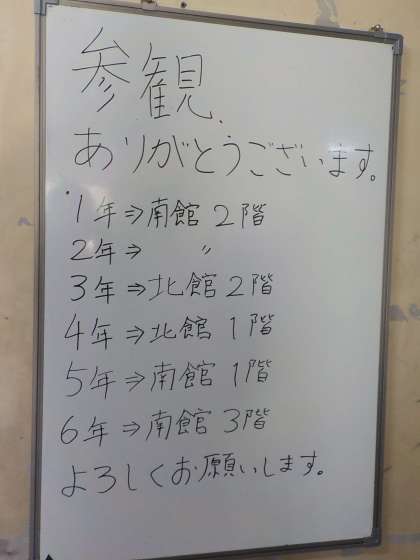 参観
ありがとうございます。
1年⇒南館2階
2年⇒ 〃
3年⇒北館2階
4年⇒北館1階
5年⇒南館1階
6年⇒南館3階
よろしくお願いします。